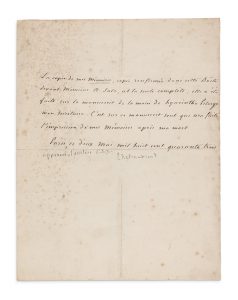 La copie de mes Mémoires, copie renfermée dans cette Boîte
devant Monsieur A. Sala, est la seule complète, elle a été
faite sur le manuscrit de la main de hyacinthe Pilorge
mon secrétaire. C'est sur ce manuscrit que sera faite
l'impression de mes Mémoires après ma mort
Paris, ce deux Mai mil huit cent quarante trois
Chateaubriand